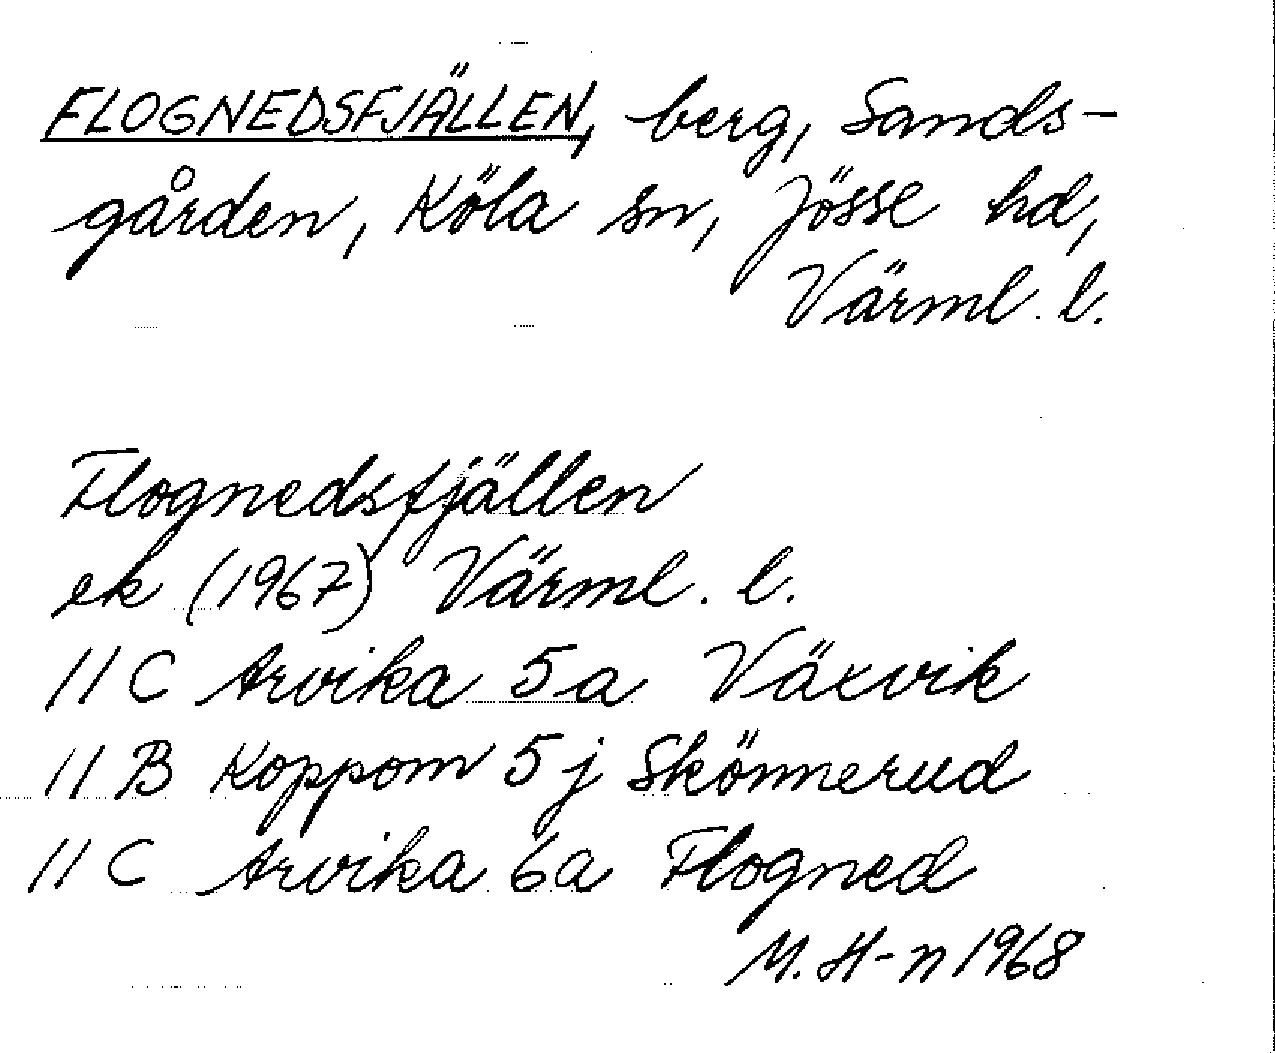 FLOGNEDSFJÄLLEN, berg, Sands-
gården, Köla sn, Jösse hd,
Värml. l.
Flognedsfjällen
ek (1967) Värml. l.
11 C Arvika 5a Växvik
11 B Koppom 5j Skönnerud
11 C Arvika 6a Flogned
M. H-n 1968